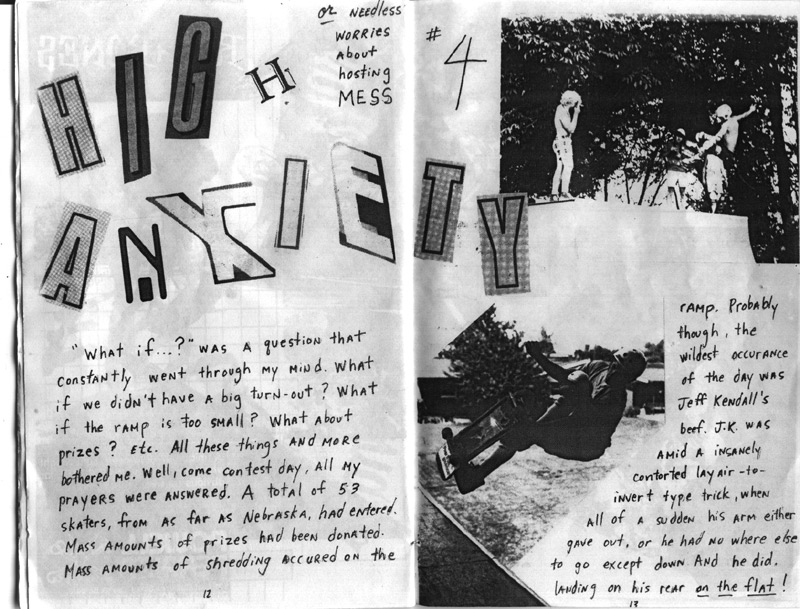 HIGH
or NEEDLESS
WORRIES
About
hosting
MESS
# 4
ANXIETY
"What if...?" was a question that
constantly went through my mind. What
if we didn't have a big turn-out? What
if the ramp is too small? What about
prizes? Etc. All these things and more
bothered me. Well, come contest day, all my
prayers were answered. A total of 53
skaters, from as far as Nebraska, had entered.
Mass amounts of prizes had been donated.
Mass amounts of shredding accured on the
12
ramp. Probably
though, the
wildest occurance
of the day was
Jeff Kendall's
beef. J.K. was
amid a insanely
contorted layair-to-
invert type trick, when
all of a sudden his arm either
gave out, or he had no where else
to go except down and he did.
landing on his rear on the flat!
13